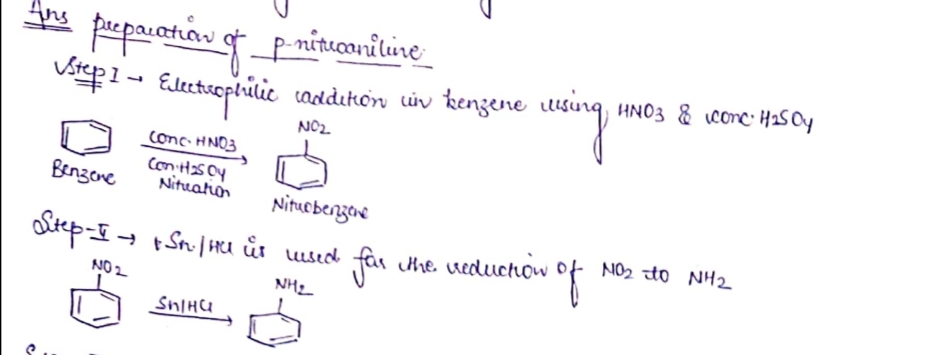 Ans preparation of p-nitroaniline
Step I → Electrophilic addition in benzene using HNO3 & conc. H2SO4
NO2
Conc. HNO3
Con. H2SO4
Nitration
Benzene
Nitrobenzene
Step-II → Sn/HCl is used for the reduction of NO2 to NH2
NO2
NH2
Sn/HCl